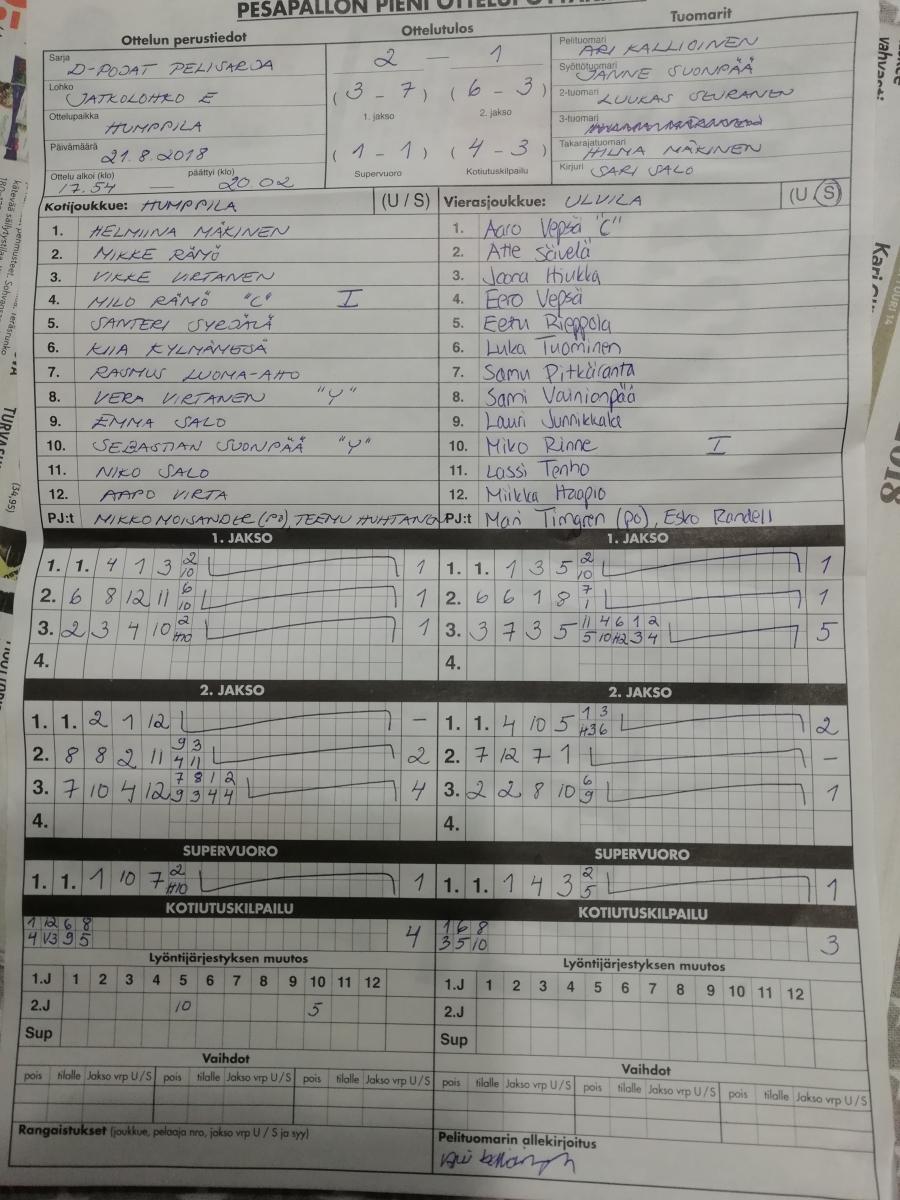 PESÄPALLON PIENI
Ottelun perustiedot
Sarja D-POJAT PELISARJA
Lohko JATKOLOHKO E
Ottelupaikka HUMPPILA
Päivämäärä 21.8.2018
Ottelu alkoi (klo) päättyi (klo)
17.54 — 20.02
Ottelutulos
2 — 1
(3 - 7) (6 - 3)
1. jakso 2. jakso
(1 - 1) (4 - 3)
Supervuoro Kotiutuskilpailu
Tuomarit
Pelituomari ARI KALLIOINEN
Syöttötuomari JANNE SUONPÄÄ
2-tuomari LUUKAS SEURANEN
3-tuomari
Takarajatuomari HILMA MÄKINEN
Kirjuri SARI SALO
Kotijoukkue: HUMPPILA (U / S)
1. HELMIINA MÄKINEN
2. MIKKE RÄMÖ
3. VIKKE VIRTANEN
4. MILO RÄMÖ "C" I
5. SANTERI SYRJÄLÄ
6. KIIA KYLMÄMETSÄ
7. RASMUS LUOMA-AHO
8. VERA VIRTANEN "Y"
9. EMMA SALO
10. SEBASTIAN SUONPÄÄ "Y"
11. NIKO SALO
12. AAPO VIRTA
PJ:t MIKKO MOISANDER (PO), TEEMU HUHTANEN
Vierasjoukkue: ULVILA (U / S)
1. Aaro Vepsä "C"
2. Atte Sävelä
3. Joona Hiukka
4. Eero Vepsä
5. Eetu Rieppola
6. Luka Tuominen
7. Samu Pitkäranta
8. Sami Vainionpää
9. Lauri Junnikkala
10. Miko Rinne I
11. Lassi Tenho
12. Miikka Haapio
PJ:t Mari Timgren (po), Esko Randell
1. JAKSO
1. 1. 4 1 3 2 1
10
2. 6 8 12 11 6 1
10
3. 2 3 4 10 2 1
H10
4.
1. JAKSO
1. 1. 1 3 5 2 1
10
2. 6 6 1 8 7 1
1
3. 3 7 3 5 11 4 6 1 2 5
5 10 H2 3 4
4.
2. JAKSO
1. 1. 2 1 12 –
2. 8 8 2 11 9 3 2
4 11
3. 7 10 4 12 7 8 1 2 4
9 3 4 4
4.
2. JAKSO
1. 1. 4 10 5 1 3 2
H3 6
2. 7 12 7 1 –
3. 2 2 8 10 6 1
9
4.
SUPERVUORO
1. 1. 1 10 7 2 1
H10
SUPERVUORO
1. 1. 1 4 3 2 1
5
KOTIUTUSKILPAILU
1 12 6 8 4
4 V3 9 5
KOTIUTUSKILPAILU
1 6 8 3
3 5 10
Lyöntijärjestyksen muutos
1.J 1 2 3 4 5 6 7 8 9 10 11 12
2.J 10 5
Sup
Lyöntijärjestyksen muutos
1.J 1 2 3 4 5 6 7 8 9 10 11 12
2.J
Sup
Vaihdot
pois tilalle Jakso vrp U / S pois tilalle Jakso vrp U / S pois tilalle Jakso vrp U / S
Vaihdot
pois tilalle Jakso vrp U / S pois tilalle Jakso vrp U / S pois tilalle Jakso vrp U / S
Rangaistukset (joukkue, pelaaja nro, jakso vrp U / S ja syy)
Pelituomarin allekirjoitus